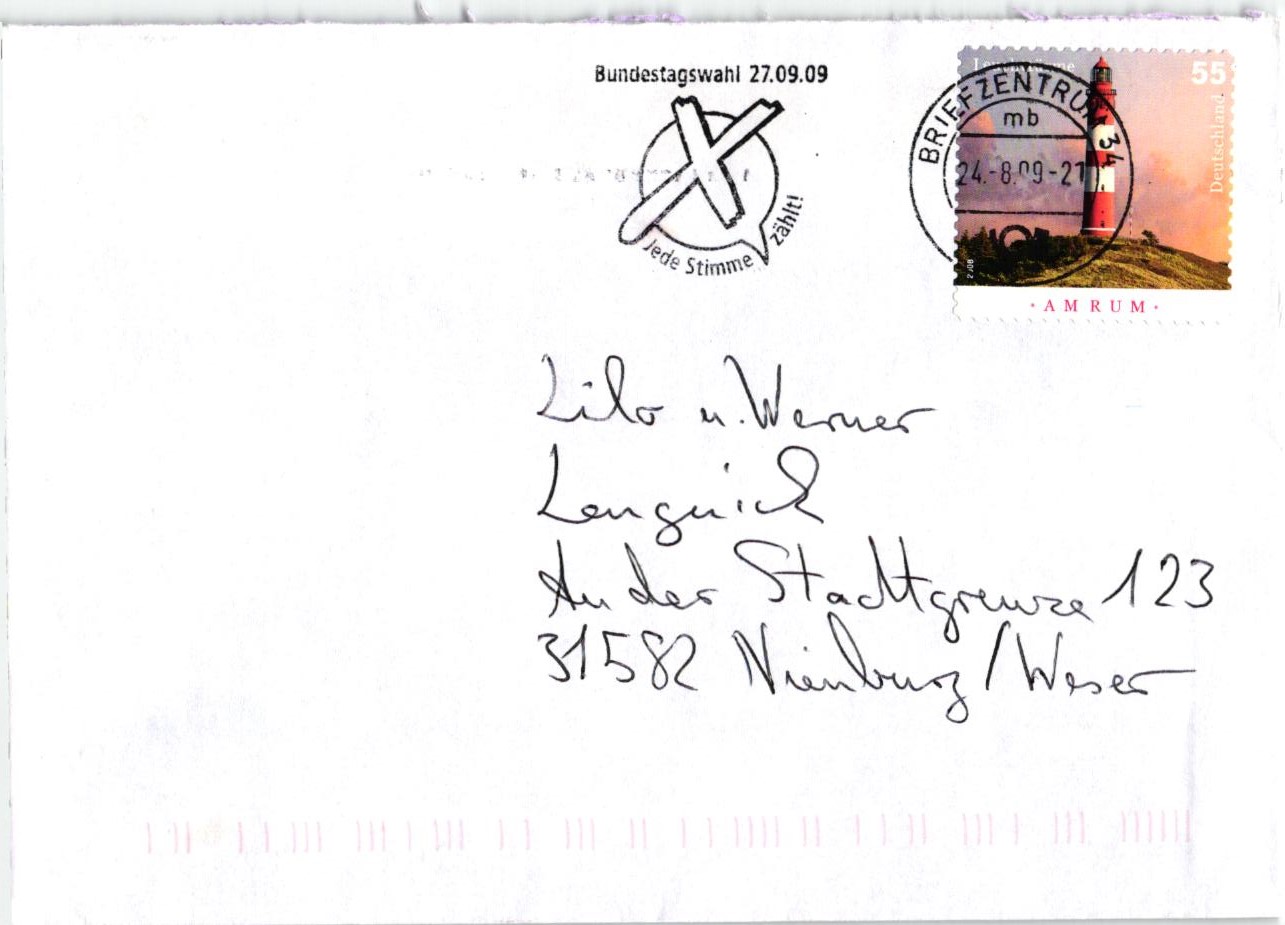 Bundestagswahl 27.09.09
Jede Stimme zählt!
BRIEFZENTRUM 34
mb
24.-8.09-21
55
Deutschland
2008
· AMRUM ·
Lilo u. Werner
Lenguick
An der Stadtgrenze 123
31582 Nienburg/Weser